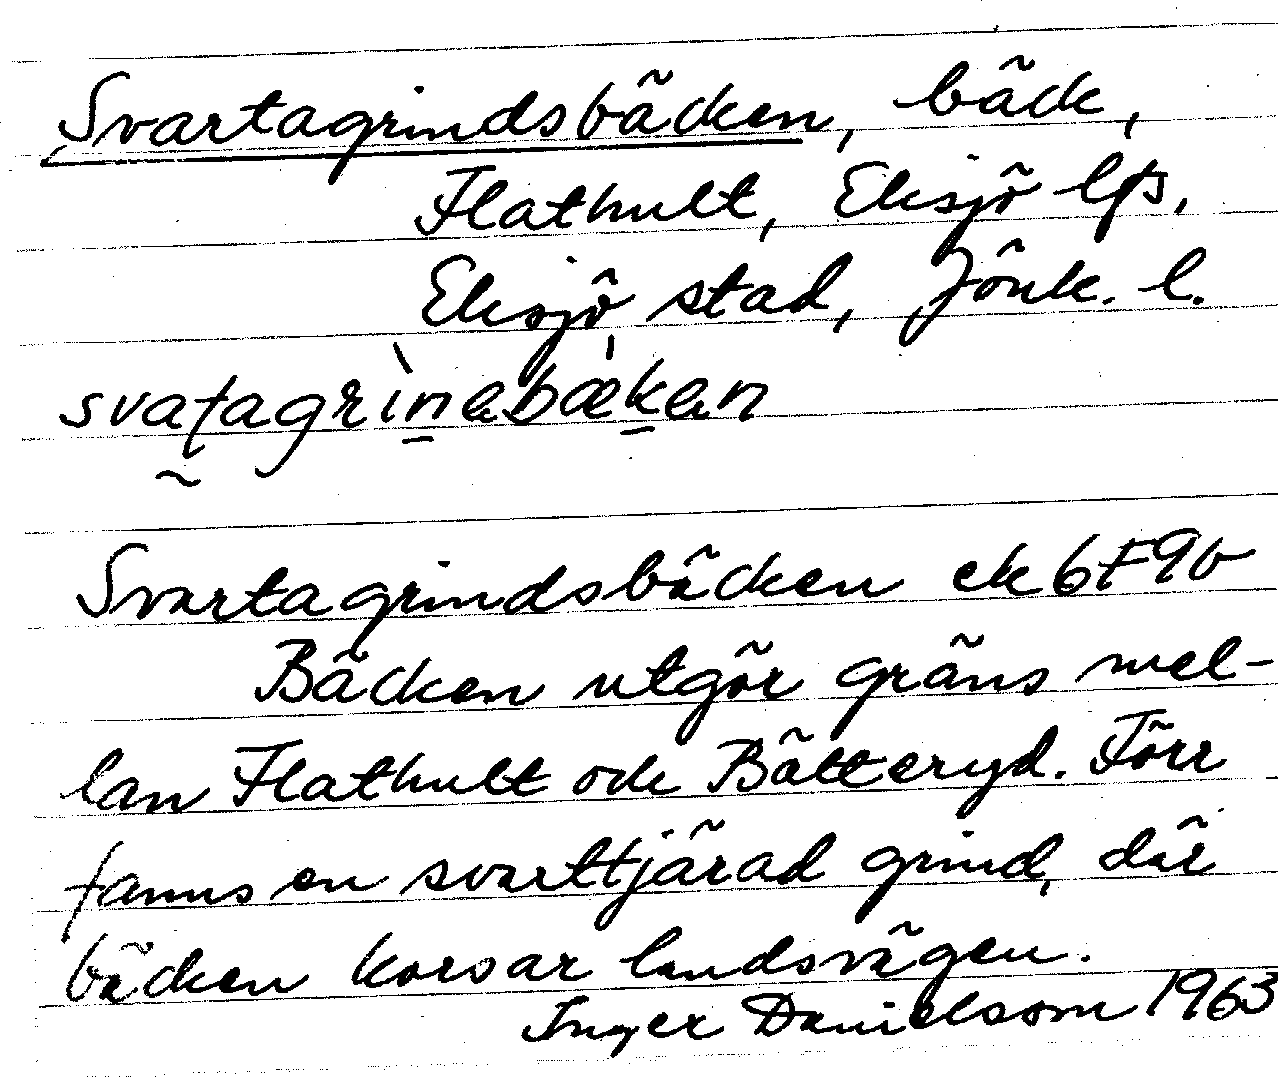 Svartagrindsbäcken, bäck,
Flathult, Eksjö lfs,
Eksjö stad, Jönk. l.
Svartagrindsbäcken ek 6F9b
Bäcken utgör gräns mel-
lan Flathult och Bätteryd. Förr
fanns en svarttjärad grind, där
bäcken korsar landsvägen.
Inger Danielsson 1963